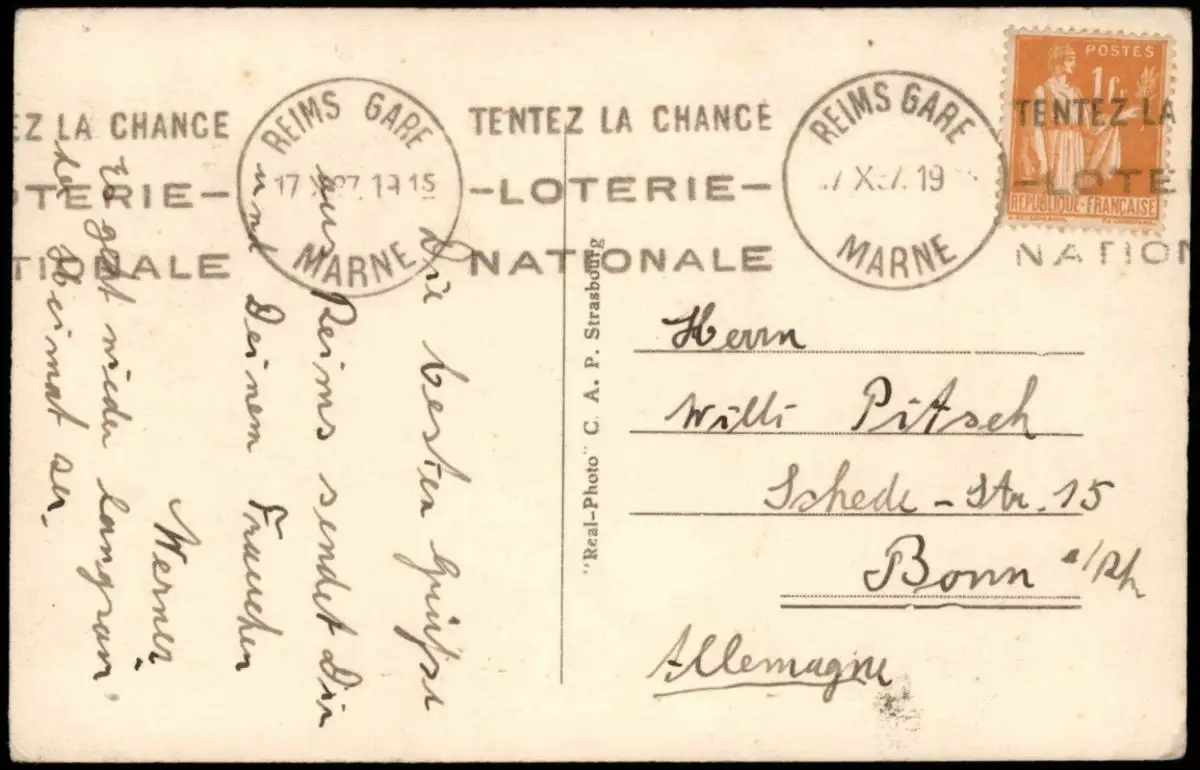 EZ LA CHANCE
OTERIE-
TIONALE
REIMS GARE
17 X 37. 19 15
MARNE
TENTEZ LA CHANCE
-LOTERIE-
NATIONALE
REIMS GARE
7 X 37. 19
MARNE
TENTEZ LA
-LOTE
NATION
POSTES
1f.
REPUBLIQUE-FRANÇAISE
Die besten Grüße
aus Reims sendet Dir
und Deinem Frauchen
Werner.
Es geht wieder langsam
der Heimat zu.
"Real-Photo" C. A. P. Strasbourg
Herrn
Willi Pitsch
Schede-Str. 15
Bonn a/Rh
Allemagne